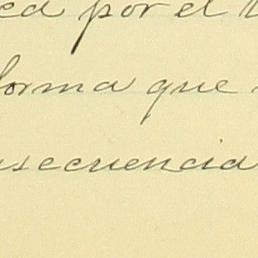 ed por el
forma que
secuencia